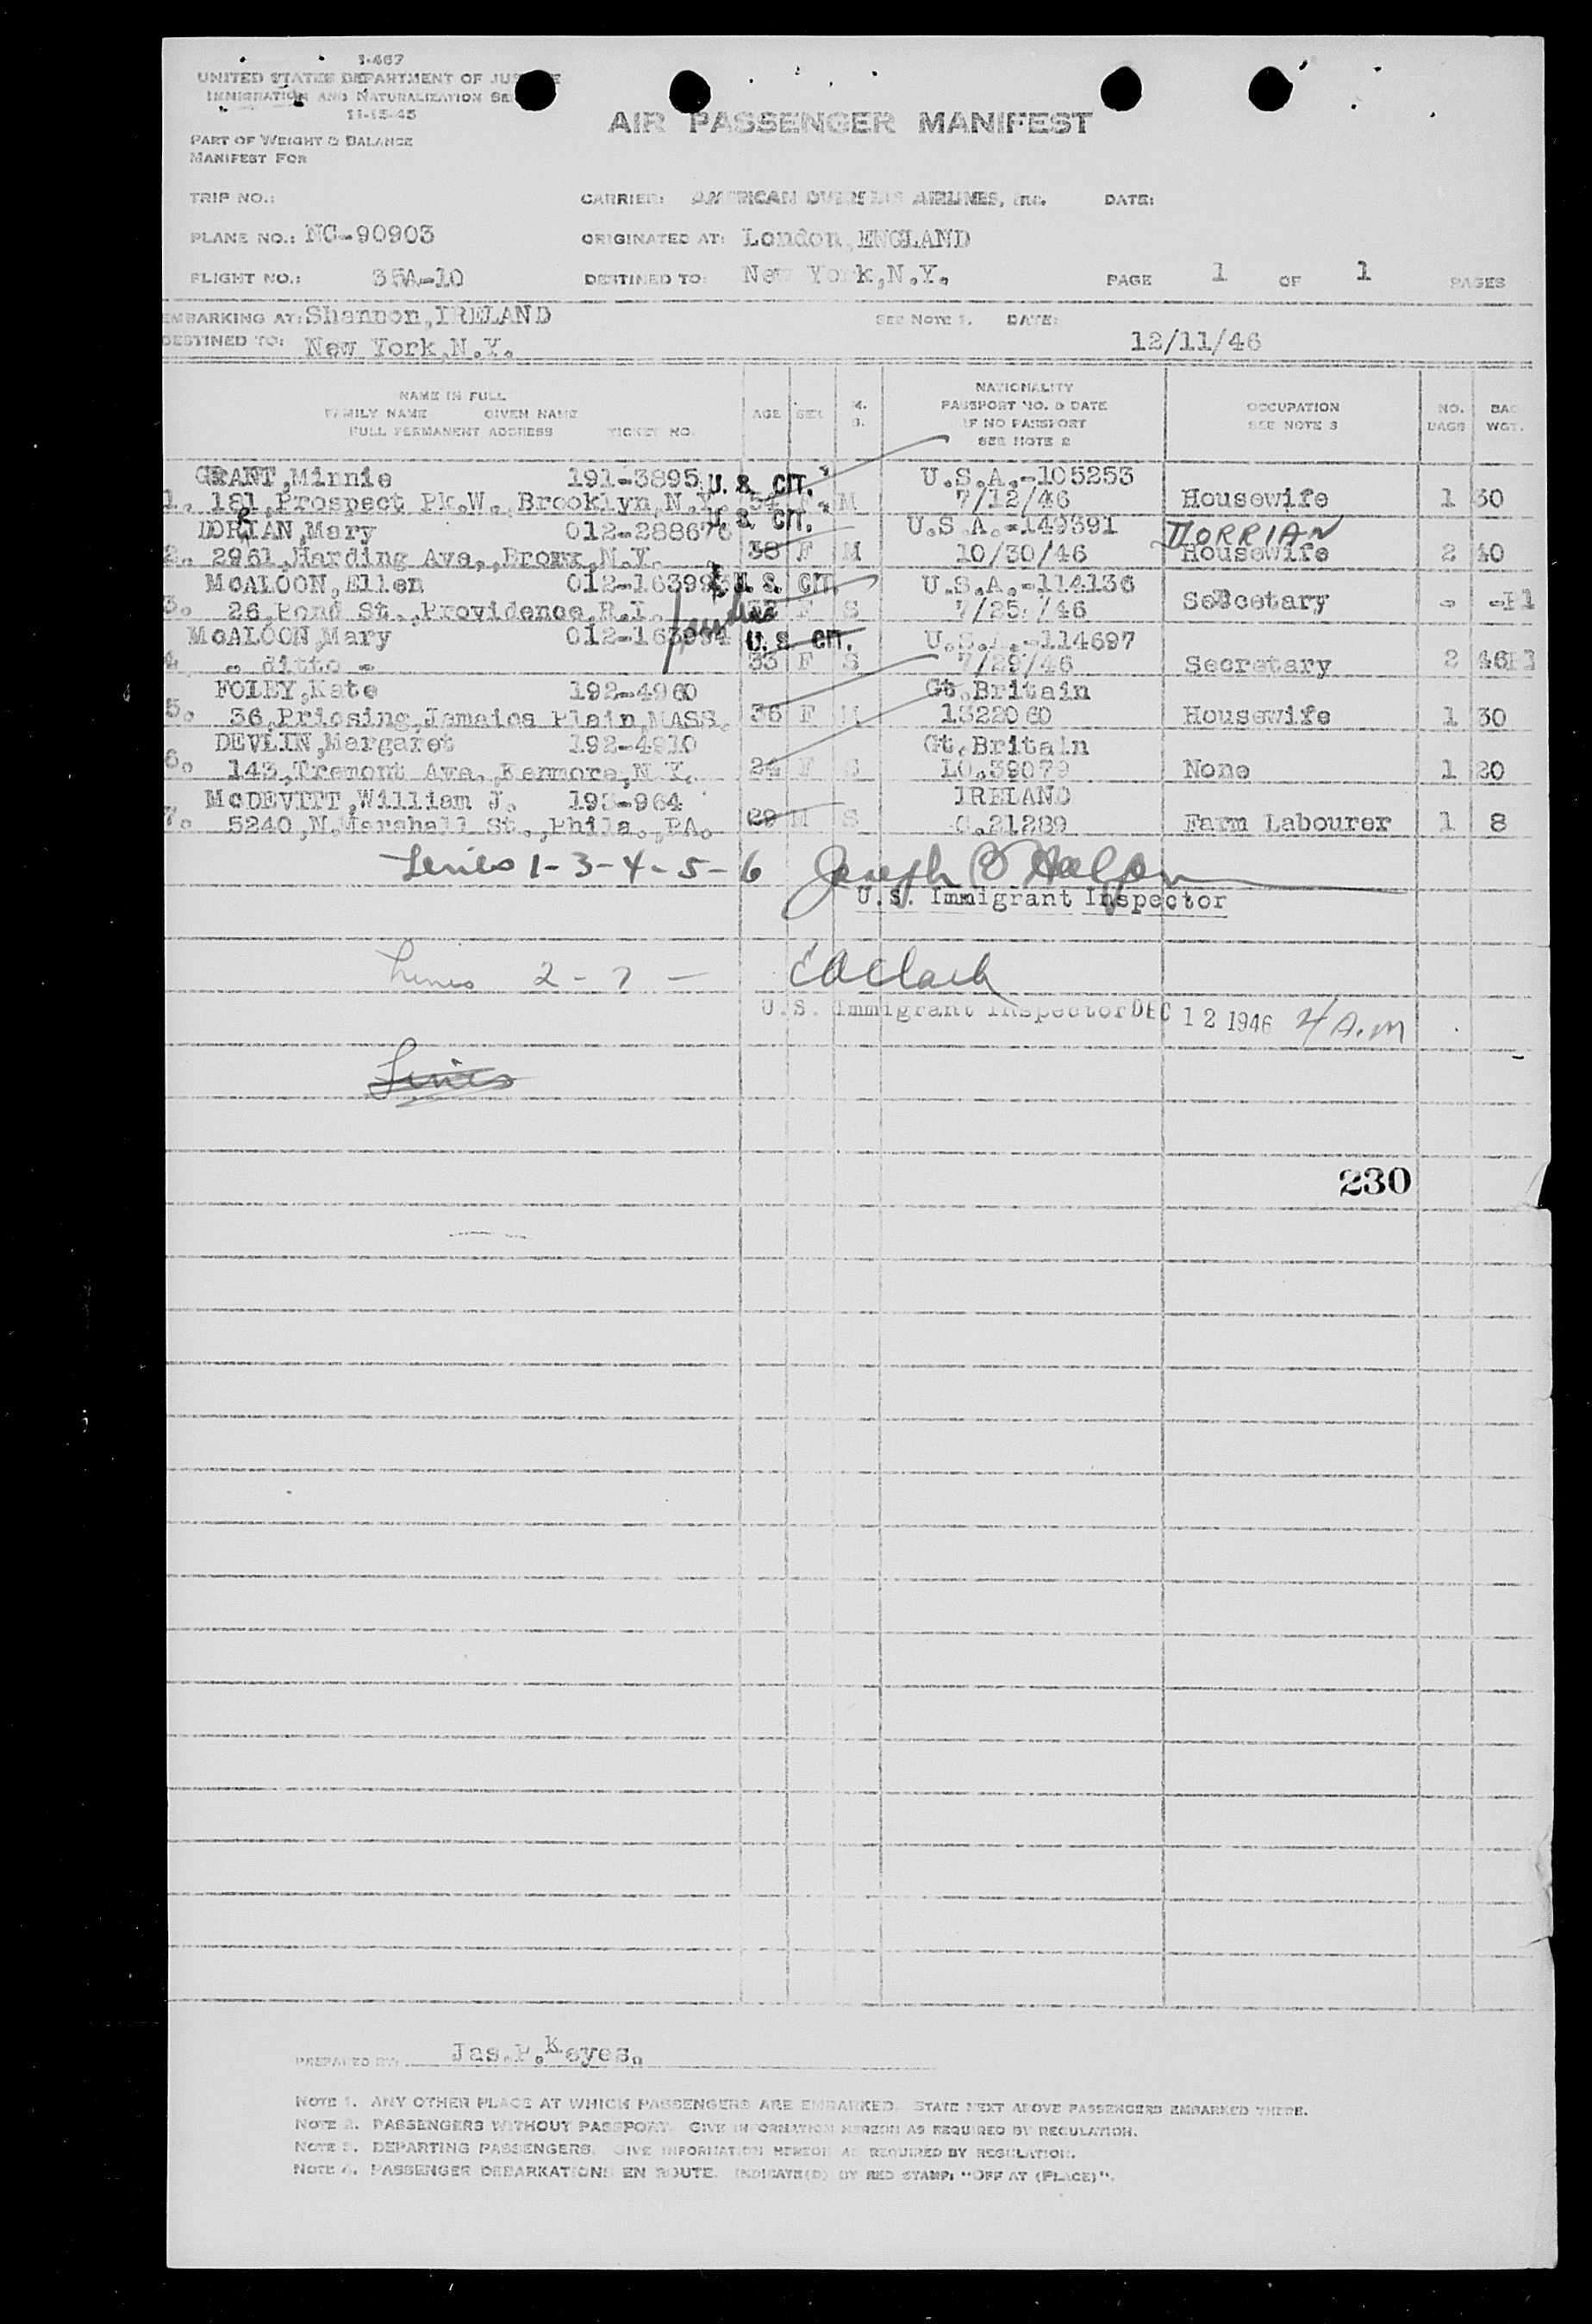 I-467
UNITED STATES DEPARTMENT OF JUSTICE
IMMIGRATION AND NATURALIZATION SE
11-15-45
AIR PASSENGER MANIFEST
PART OF WEIGHT & BALANCE
MANIFEST FOR
TRIP NO.: CARRIER: AMERICAN OVERSEAS AIRLINES, INC. DATE:
PLANE NO.: NC-90903 ORIGINATED AT: London,ENGLAND
FLIGHT NO.: 35A-10 DESTINED TO: New York,N.Y. PAGE 1 OF 1 PAGES
EMBARKING AT: Shannon,IRELAND SEE NOTE 1. DATE:
DESTINED TO: New York,N.Y. 12/11/46
NAME IN FULL
FAMILY NAME GIVEN NAME
FULL PERMANENT ADDRESS TICKET NO. AGE SEX M. S. NATIONALITY PASSPORT NO. & DATE IF NO PASSPORT SEE NOTE 2 OCCUPATION SEE NOTE 3 NO. BAGS BAG WGT.
GRANT,Minnie 191-3895 U. S. CIT. U.S.A.-105253
1. 181,Prospect Pk.W.,Brooklyn,N.Y. 54 F M 7/12/46 Housewife 1 30
DORIAN,Mary 012-288676 U. S. CIT. U.S.A.-149391 DORRIAN
2. 2961,Harding Ave.,Bronx,N.Y. 38 F M 10/30/46 Housewife 2 40
McALOON,Ellen 012-163993 U. S. CIT. U.S.A.-114136
3. 26,Pond St.,Providence,R.I. F S 7/25/46 Secretary - -Pl
McALOON,Mary 012-163994 U. S. CIT. U.S.A.-114697
4 - ditto - 33 F S 7/29/46 Secretary 2 46Pl
FOLEY,Kate 192-4960 Gt.Britain
5. 36,Priesing,Jamaica Plain,MASS. 36 F M 1322060 Housewife 1 30
DEVLIN,Margaret 192-4910 Gt.Britain
6. 143,Tremont Ave.,Kenmore,N.Y. 24 F S LO.39079 None 1 20
McDEVITT,William J. 193-964 IRELAND
7. 5240,N.Marshall St.,Phila.,PA. 29 M S C.21289 Farm Labourer 1 8
Lines 1-3-4-5-6 Joseph B Halpern
U.S. Immigrant Inspector
Lines 2-7- E A Clark
U.S. Immigrant Inspector DEC 12 1946 4 A.M
Lines
230
PREPARED BY: Jas.P.Keyes.
NOTE 1. ANY OTHER PLACE AT WHICH PASSENGERS ARE EMBARKED. STATE NEXT ABOVE PASSENGERS EMBARKED THERE.
NOTE 2. PASSENGERS WITHOUT PASSPORT. GIVE INFORMATION HEREON AS REQUIRED BY REGULATION.
NOTE 3. DEPARTING PASSENGERS. GIVE INFORMATION HEREON AS REQUIRED BY REGULATION.
NOTE 4. PASSENGER DEBARKATIONS EN ROUTE. INDICATE(D) BY RED STAMP: "OFF AT (PLACE)".